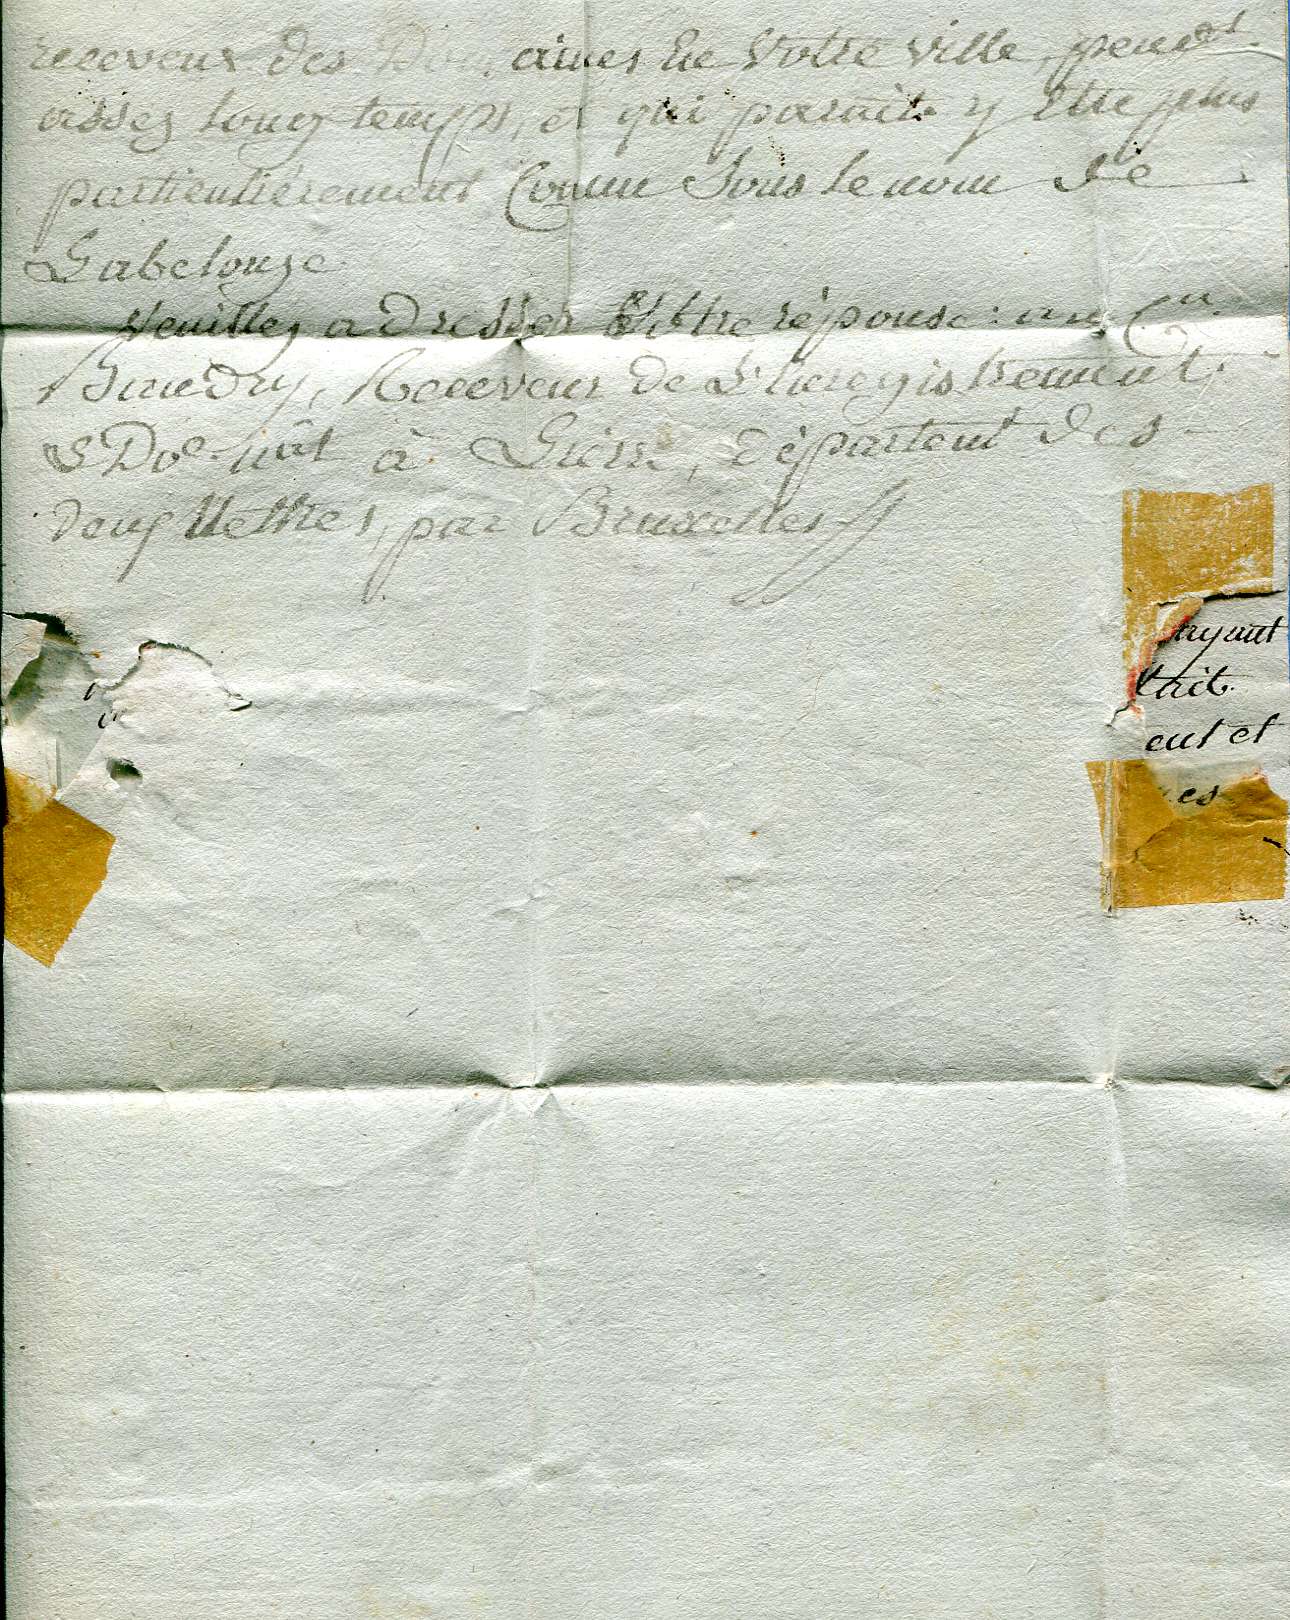 receveur des Domaines de Votre ville, pendt
assez long temps, et qui parait y être plus
particulièrement Connu Sous le nom de
Labelouze
Veuillez adresser Votre réponse: au Cen
Baudry, Receveur de L'Enregistrement
& Do^e nat à Lierre, Départemt des
deux Nèthes, par Bruxelles
ayant
tait
ent et
es